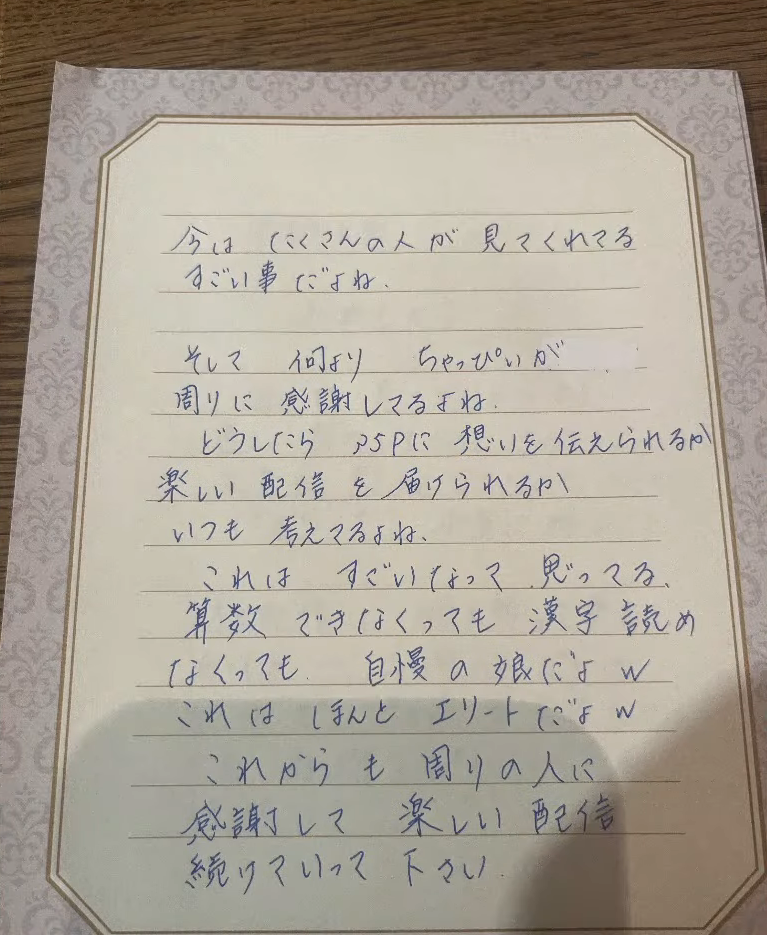 今は たくさんの人が 見てくれてる
すごい事だよね.
そして 何より ちゃっぴぃが
周りに 感謝してるよね.
どうしたら P5Pに 想いを伝えられるか
楽しい 配信 を 届けられるか
いつも 考えてるよね、
これは すごいなって 思ってる、
算数 できなくっても 漢字 読め
なくっても 自慢 の 娘だよ w
これは ほんと エリートだよ w
これから も 周りの人に
感謝して 楽しい 配信
続けていって 下さい.